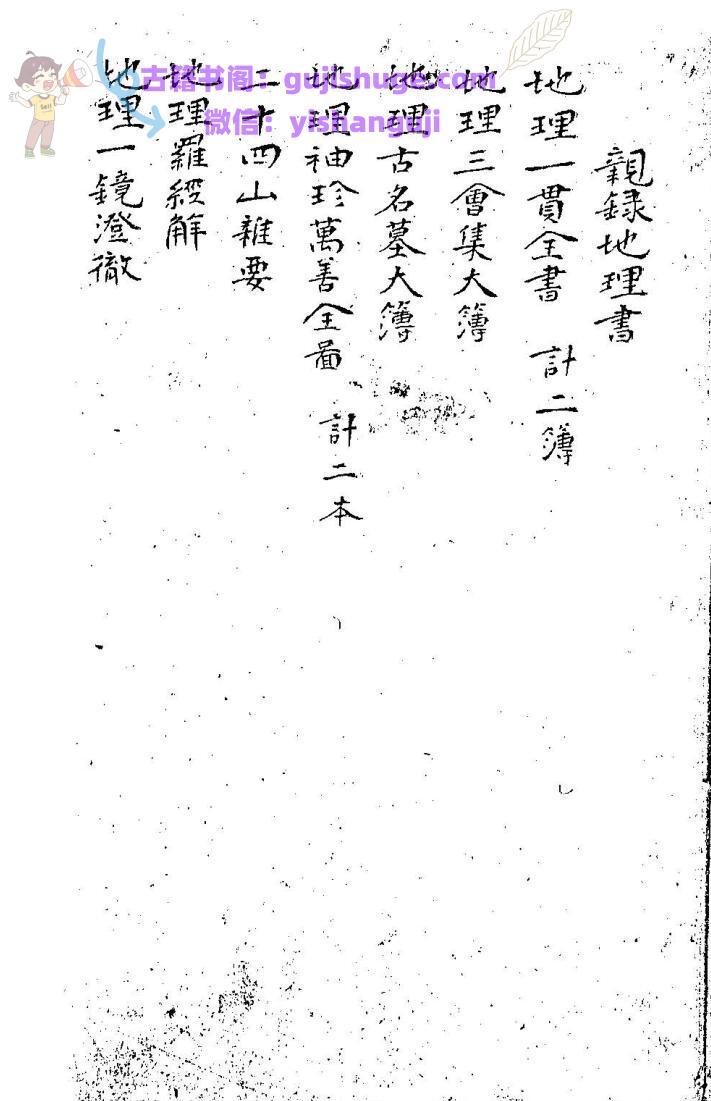 親録地理書
地理一貫全書　計二簿
地理三會集大簿
地理古名墓大簿
地理袖珍萬善全圖　計二本
二十四山雜要
地理羅經解
地理一鏡澄徹
古籍书阁：gujishuge.com
微信：yishanguji